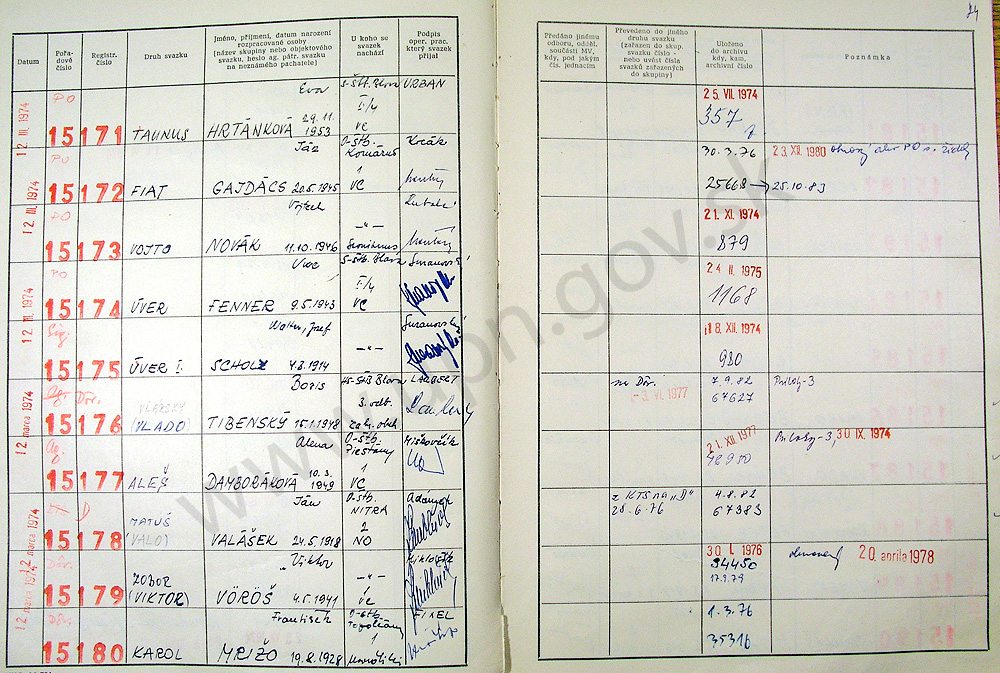 74
Datum
Pořadové číslo
Registr. číslo
Druh svazku
Jméno, příjmení, datum narození rozpracované osoby (název skupiny nebo objektového svazku, heslo ag. pátr. svazku na neznámého pachatele)
U koho se svazek nachází
Podpis oper. prac. který svazek přijal
Předáno jinému odboru, odděl. součásti MV, kdy, pod jakým čís. jednacím
Převedeno do jiného druhu svazku (zařazen do skup. svazku číslo - nebo uvést čísla svazků zařazených do skupiny)
Uloženo do archivu kdy, kam, archivní číslo
Poznámka
12. III. 1974 PO 15171 TAUNUS Eva HRTÁNKOVÁ 29.11. 1953 S-ŠtB. Blava II/4 VC URBAN
25. VII. 1974 357
PO 15172 FIAT Ján GAJDÁCS 20.5.1945 O-ŠtB. Komárno 1 VC Kočák
30.3.76 25668 → 25.10.83 23. XII. 1980
12. III. 1974 PO 15173 VOJTO Vojtech NOVÁK 11.10.1946 -"-
21. XI. 1974 879
PO 15174 ÚVER FENNER 9.5.1943 S-ŠtB. Blava II/4 VC
24. II. 1975 1168
12. III. 1974 15175 ÚVER I. Walter, Josef SCHOLZ 4.8.1914 -"-
18. XII. 1974 980
Ag. Dôv. 15176 (VLADO) Boris TIBENSKÝ 15.1.1948 3. odb. LAUBERT
na Dôv. -3. VI. 1977 7.9.82 67627 Príloh-3
12. marca 1974 Ag. 15177 ALEŠ Alena DAMBORÁKOVÁ 10.3. 1949 O-ŠtB. Piešťany 1 VC Miškovčík
21. XII. 1977 46950 Prílohy-3, 30 IX. 1974
D 15178 MATÚŠ (VALO) Ján VALÁŠEK 24.5.1918 O-ŠtB. NITRA 2 NO Adamček
z KTS na "D" 28.6.76 4.8.82 67383
12. marca 1974 Dôv. 15179 ZOBOR (VIKTOR) Viktor VÖRÖŠ 4.5.1941 -"- 1 VC
30. I. 1976 34450 17.9.79 20. apríla 1978
12. marca 1974 Dôv. 15180 KAROL František MRIŽO 19.8.1928 O-ŠtB. Topoľčany 1 FIXEL
1.3.76 35316
www.upn.gov.sk